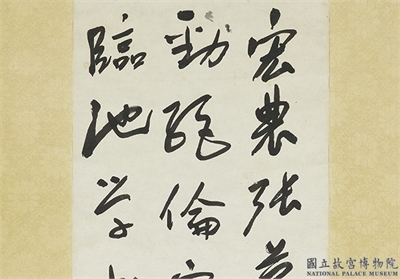 宏農張芝
勁絕倫
臨池學
國立故宮博物院
NATIONAL PALACE MUSEUM